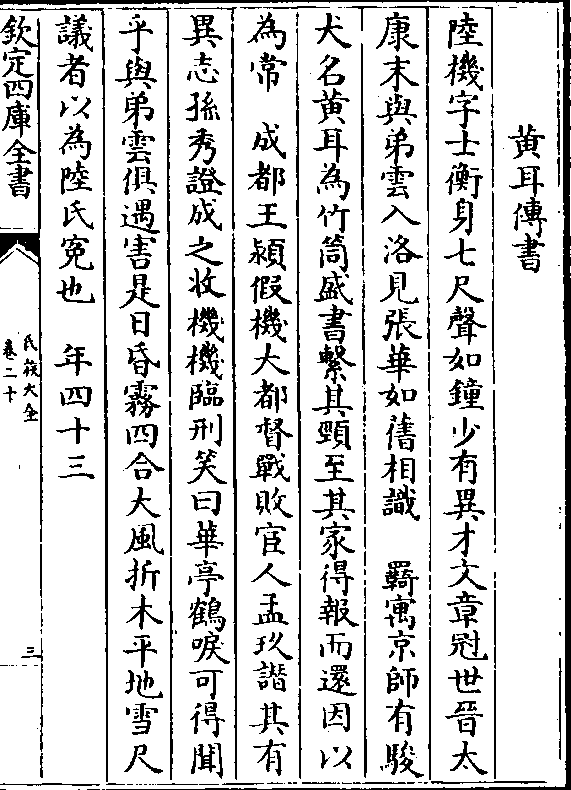 黄耳傳書
陸機字士衡身七尺聲如鐘少有異才文章冠世晉太
康末與弟雲入洛見張華如舊相識　羇寓京師有駿
犬名黄耳為竹筒盛書繫其頸至其家得報而還因以
為常　成都王穎假機大都督戰敗宦人孟玖譖其有
異志孫秀證成之收機機臨刑笑曰華亭鶴唳可得聞
乎與弟雲俱遇害是日昏霧四合大風折木平地雪尺
議者以為陸氏寃也　年四十三
欽定四庫全書
氏族大全
卷二十
三